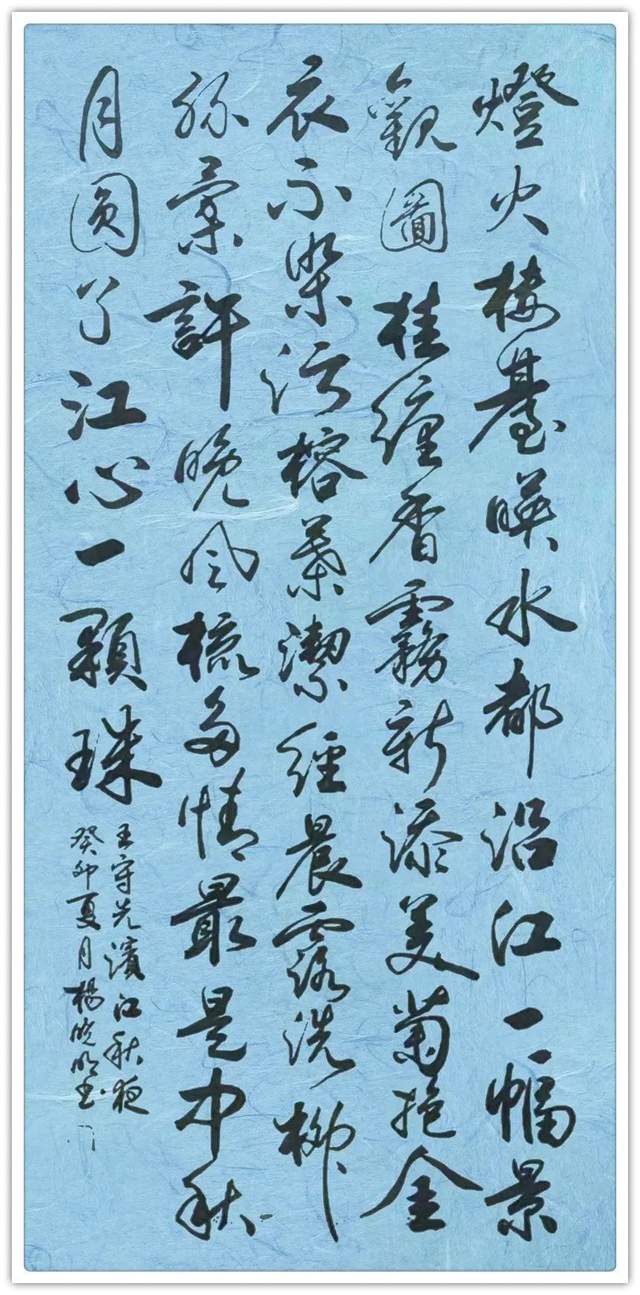 燈火樓臺暎水都沿江一幅景
觀圖桂纏香霧新添美菊抱金
衣不染污榕葉潔經晨露洗柳
絲柔許晚風梳多情最是中秋
月圓了江心一顆珠
王守先濱江秋夜
癸卯夏月楊晓明书